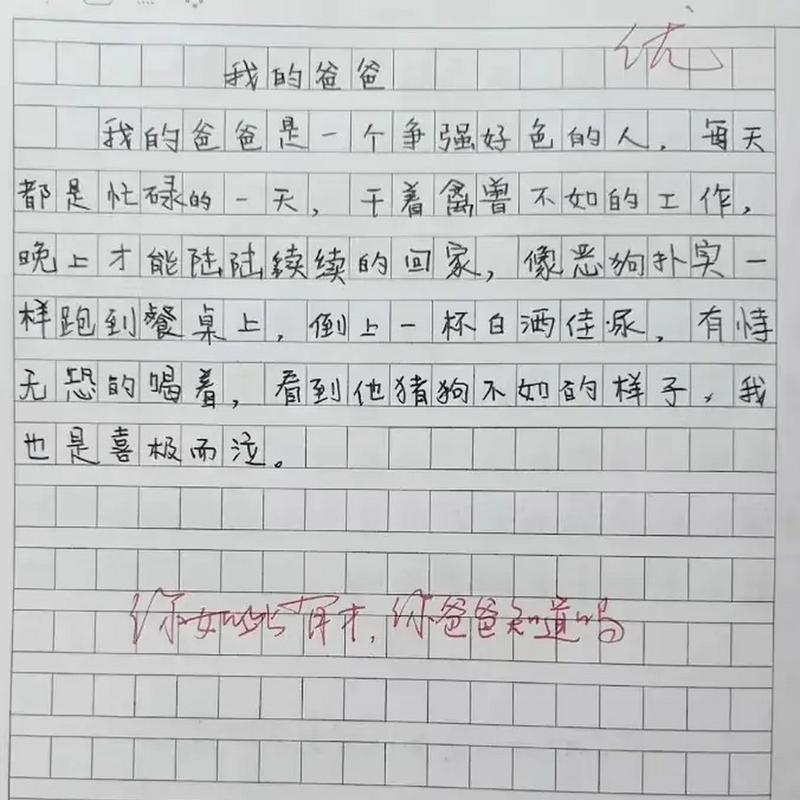 优
我的爸爸
我的爸爸是一个争强好色的人，每天
都是忙碌的一天，干着禽兽不如的工作，
晚上才能陆陆续续的回家，像恶狗扑实一
样跑到餐桌上，倒上一杯白洒佳尿，有恃
无恐的喝着，看到他猪狗不如的样子，我
也是喜极而泣。
你如此有才，你爸爸知道吗